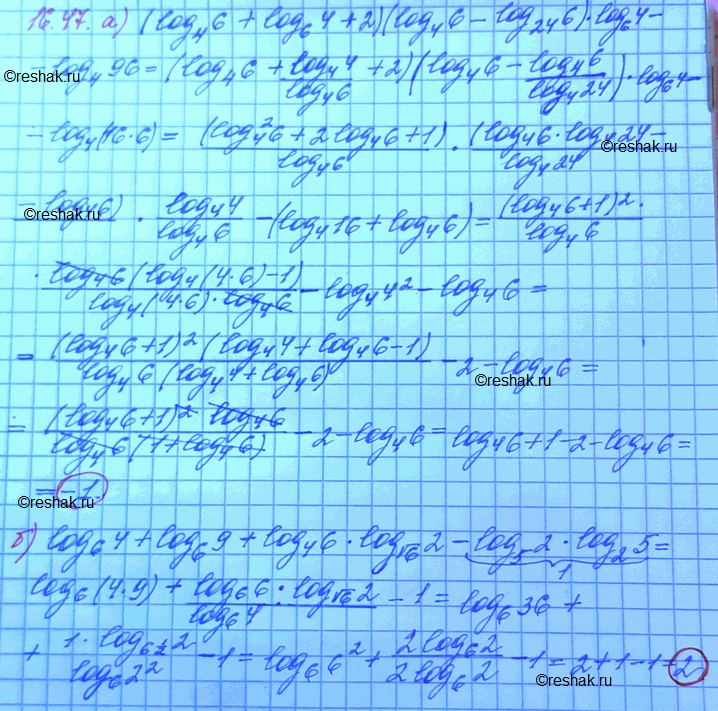 16.47. а) (log₄6 + log₆4 + 2)(log₄6 − log₂₄6)·log₆4 −
− log₄96 = (log₄6 + log₄4/log₄6 + 2)(log₄6 − log₄6/log₄24)·log₆4 −
− log₄(16·6) = (log₄²6 + 2log₄6 + 1)/log₄6 · (log₄6·log₄24 −
− log₄6)/log₄24 · log₄4/log₄6 − (log₄16 + log₄6) = (log₄6+1)²/log₄6 ·
· log₄6(log₄(4·6)−1)/(log₄(4·6)·log₄6) − log₄4² − log₄6 =
= (log₄6+1)²(log₄4 + log₄6 − 1)/(log₄6(log₄4 + log₄6)) − 2 − log₄6 =
= (log₄6+1)² log₄6/(log₄6(1+log₄6)) − 2 − log₄6 = log₄6 + 1 − 2 − log₄6 =
= −1.
б) log₆4 + log₆9 + log₄6·log_√6 2 − log₅2·log₂5 =
1
log₆(4·9) + log₆6·log_√6 2/log₆4 − 1 = log₆36 +
+ 1·log_6^½ 2/log₆2² − 1 = log₆6² + 2log₆2/2log₆2 − 1 = 2+1−1=2
©reshak.ru
©reshak.ru
©reshak.ru
©reshak.ru
©reshak.ru
©reshak.ru
©reshak.ru
©reshak.ru